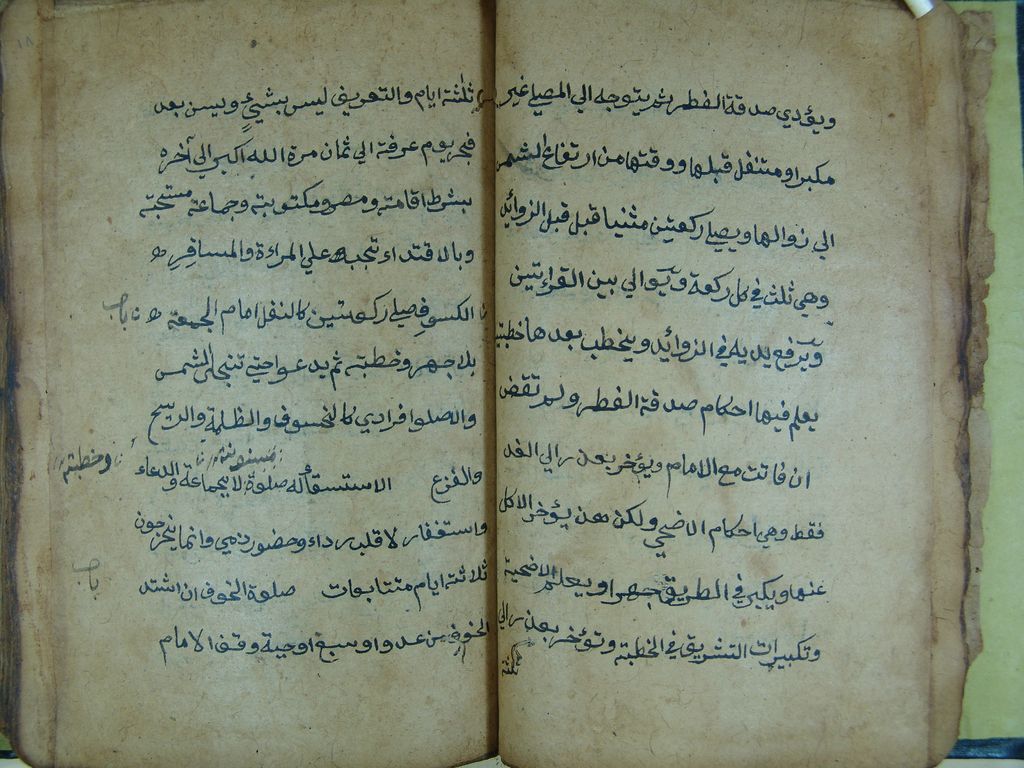 ويؤدي صدقة الفطر ثم يتوجه الي المصلي غير
مكبرا ومتنفل قبلها ووقتها من ارتفاع الشمس
الي زوالها ويصلي ركعتين مثنيا قبل قبل الزوائد
وهي ثلث في كل ركعة ويوالي بين القرائتين
ويرفع يديه في الزوائد ويخطب بعدها خطبتين
يعلم فيها احكام صدقة الفطر ولم تقض
ان فاتت مع الامام ويؤخر بعذر الي الغد
فقط وهي احكام الاضحي ولكن هن يؤخر الاكل
عنها ويكبر في الطريق جهرا ويعلم الاضحية
وتكبيرات التشريق في الخطبة وتؤخر بعذر الي
ثلثة
ثلثة ايام والتعريف ليس بشيئ ويسن بعد
فجر يوم عرفة الي ثمان مرة الله اكبر الي آخره
بشرط اقامة ومصر ومكتوبة وجماعة مستحبة
وبالاقتداء تجب علي المراءة والمسافر
باب
الكسوف صلي ركعتين كالنفل امام الجمعة
بلا جهر وخطبة ثم يدعوا حتي تنجلي الشمس
والا صلوا فرادي كالخسوف والظلمة والريح
والفزع الاستسقأ له صلوة لا بجماعة والدعاء
مسنونة
وخطبة
واستغفار لا قلب رداء وحضور ذمي وانما يخرجون
ثلاثة ايام متتابعات صلوة الخوف ان اشتد
باب
الخوف من عدو او سبع او حية وقف الامام